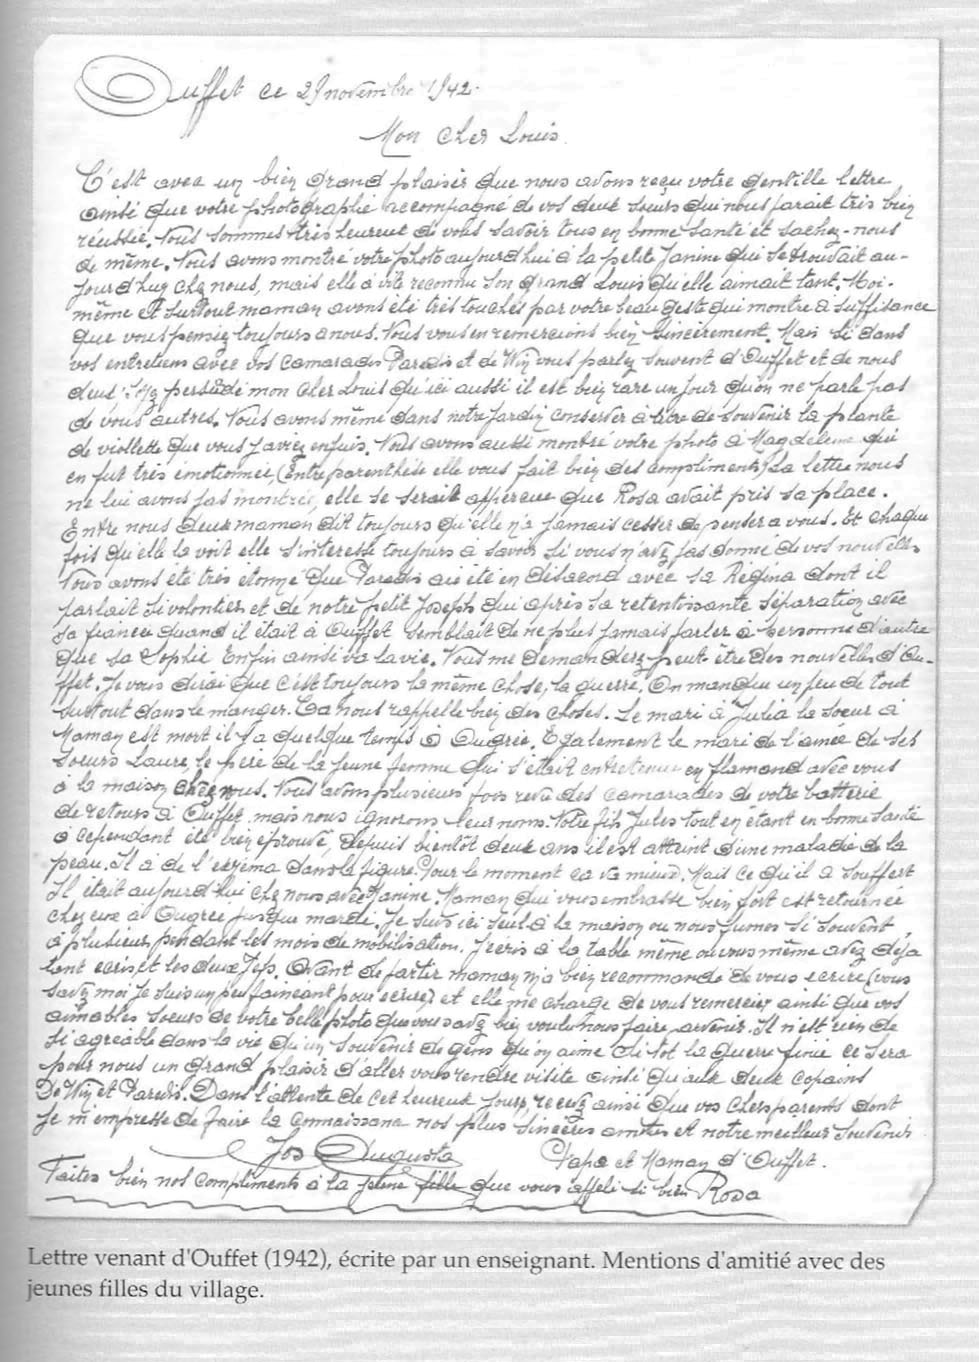 Ouffet ce 29 novembre 1942.
Mon cher Louis.
C'est avec un bien grand plaisir que nous avons reçu votre gentille lettre
ainsi que votre photographie accompagné de vos deux sœurs qui nous parait très bien
réussie. Nous sommes très heureux de vous savoir tous en bonne santé et sachez-nous
de même. Nous avons montré votre photo aujourd'hui à la petite Janine qui se trouvait au-
jourd'huy chez nous, mais elle a vite reconnu son grand Louis qu'elle aimait tant. Moi-
même et surtout maman avons été très touchés par votre beau geste qui montre à suffisance
que vous pensiez toujours a nous. Nous vous en remercions bien sincèrement. Mais si dans
vos entretiens avec vos camarades Paradis et de Win vous parlez souvent d'Ouffet et de nous
deux: soyez persuadé mon cher Louis qu'ici aussi il est bien rare un jour qu'on ne parle pas
de vous autres. Nous avons même dans notre jardin conserver à titre de souvenir la plante
de viollette que vous y aviez enfuis. Nous avons aussi montré votre photo à Magdeleine qui
en fut très émotionnée, (Entre parenthèse elle vous fait bien des compliments) La lettre nous
ne lui avons pas montrée, elle se serait apperçue que Rosa avait pris sa place.
Entre nous deux maman dit toujours qu'elle n'a jamais cesser de penser a vous. Et chaque
fois qu'elle la voit elle s'intéresse toujours à savoir si vous n'avez pas donné de vos nouvelles
Nous avons été très étonné que Paradis aie été en désacord avec sa Régina dont il
parlait si volontier et de notre petit Joseph qui après sa retentissante séparation avec
sa fiancée quand il était à Ouffet semblait de ne plus jamais parler à personne d'autre
que sa Sophie Enfin ainsi va la vie. Vous me demanderez peut-être des nouvelles d'Ou-
ffet. Je vous dirai que c'est toujours la même chose, la guerre. On manque un peu de tout
surtout dans le manger. Ca nous rappelle bien des choses. Le mari à Julia la soeur à
Maman est mort il y a quelque temps à Ougrée. Egalement le mari de l'ainée de ses
soeurs Laure, le père de la jeune femme qui s'était entretenue en flamand avec vous
à la maison chez nous. Nous avons plusieurs fois revu des camarades de votre batterie
de retours à Ouffet, mais nous ignorons leur noms. Votre fils Jules tout en étant en bonne santé
a cependant été bien éprouvé, depuis bientôt deux ans il est atteint d'une maladie de la
peau. Il a de l'exzéma dans la figure. Pour le moment ca va mieux. Mais ce qu'il a souffert
Il était aujourd'hui chez nous avec Janine. Maman qui vous embrasse bien fort est retournée
chez eux a Ougree jusque mardi. Je suis ici seul à la maison ou nous fumes si souvent
à plusieurs pendant les mois de mobilisation. J'écris à la table même ou vous même avez déjà
tant écris, et les deux Jefs. Avant de partir maman m'a bien recommandé de vous ecrire (vous
savez moi je suis un peu fainéant pour ecrire) et elle me charge de vous remercier ainsi que vos
aimables soeurs de votre belle photo que vous avez bien voulu nous faire parvenir. Il n'est rien de
si agreable dans la vie qu'un souvenir de gens qu'on aime Si tot la guerre finie ce sera
pour nous un grand plaisir d'aller vous rendre visite ainsi qu'aux deux copains
De Win et Paradis. Dans l'attente de cet heureux jour, recevez ainsi que vos chers parents dont
je m'empresse de faire la connaissance nos plus sincères amities et notre meilleur souvenir
Jos Augusta Papa et Maman d'Ouffet.
Faites bien nos compliments à la jeune fille que vous appeli si bien Rosa
Lettre venant d'Ouffet (1942), écrite par un enseignant. Mentions d'amitié avec des
jeunes filles du village.